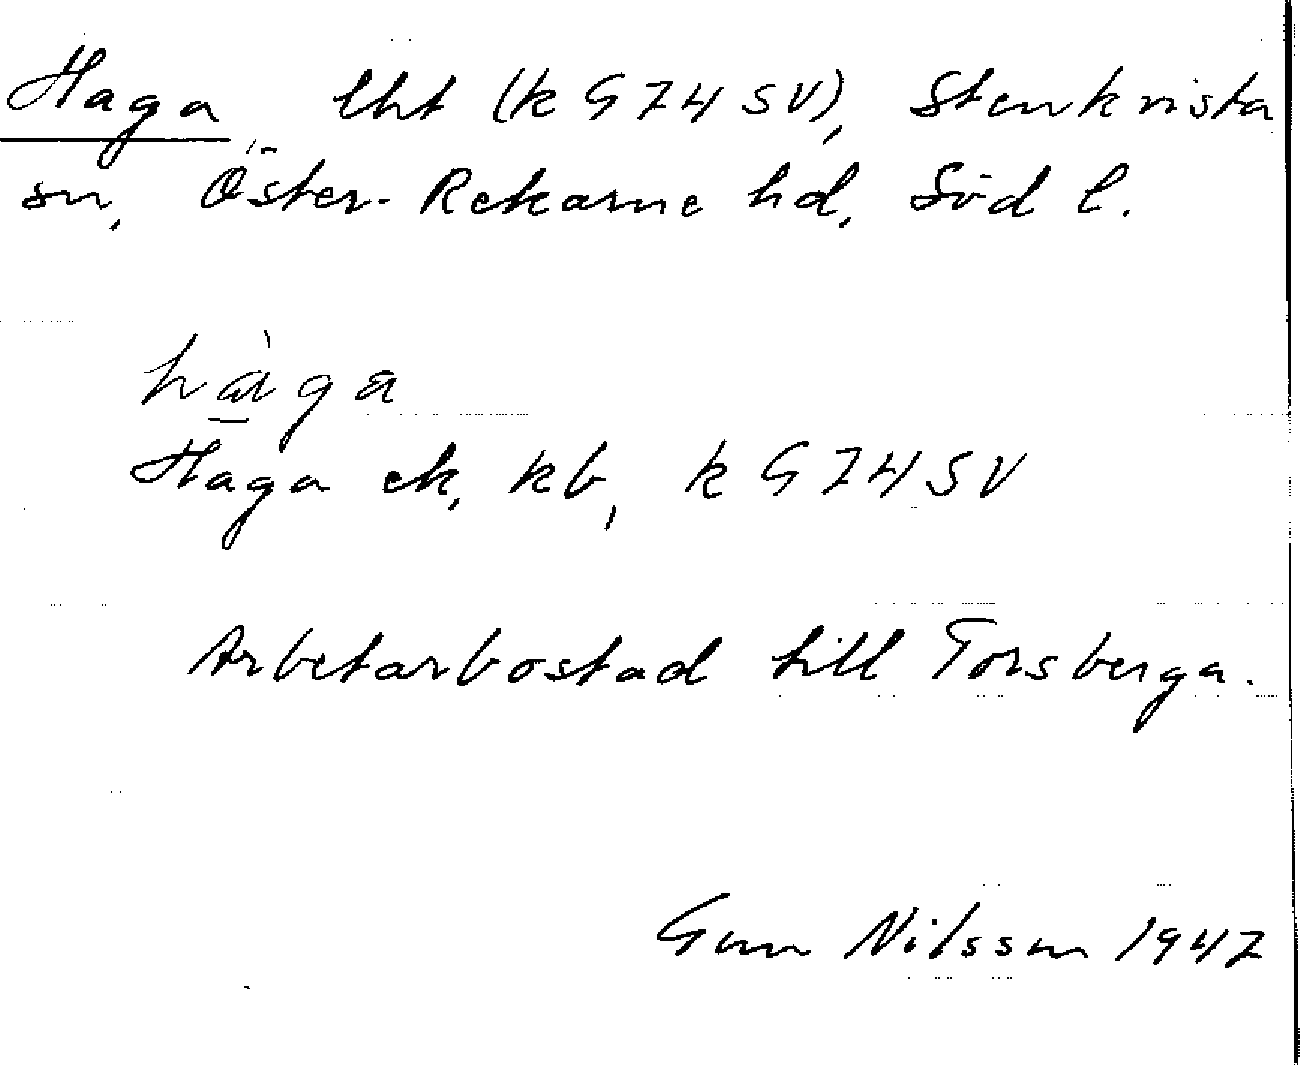 Haga lht (k G74SV), Stenkvista
sn, Öster-Rekarne hd, Söd l.
hàga
Haga ek, kb, k G74SV
Arbetarbostad till Torsberga.
Gun Nilsson 1947